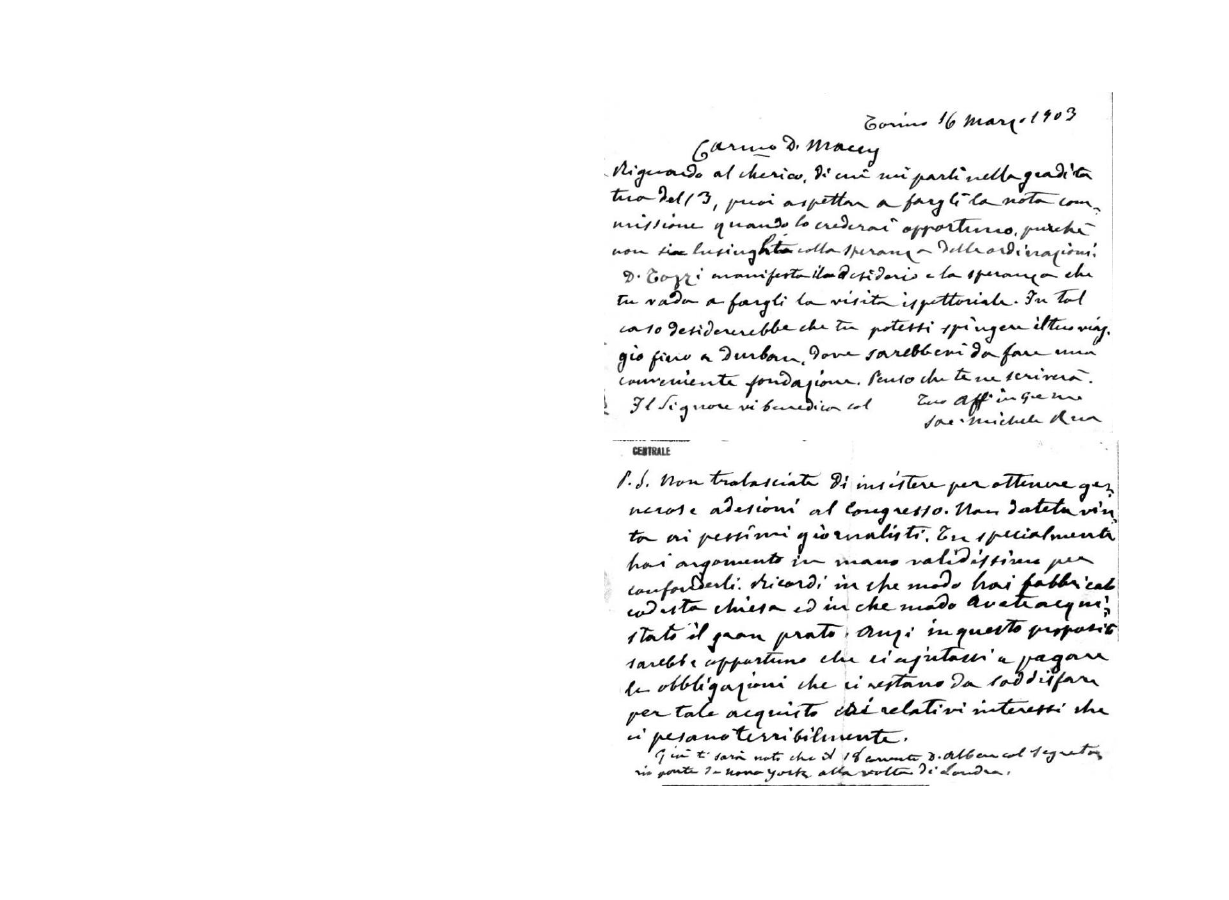 Torino 16 Marzo 1903
Carmo D. Macey
Riguardo al cherico, di cui mi parli nella gradita
tua del 13, puoi aspettar a fargli la nota com-
missione quando lo crederai opportuno, purchè
non sia lusinghato colla speranza delle ordinazioni.
D. Tozzi manifesta il desiderio e la speranza che
tu vada a fargli la visita ispettoriale. In tal
caso desidererebbe che tu potessi spingere il tuo viag-
gio fino a Durban, dove sarebbevi da fare una
conveniente fondazione. Penso che te ne scriverà.
Il Signore vi benedica col
Tuo Aff in G e M
Sac. Michele Rua
CENTRALE
P.S. Non tralasciate di insistere per ottenere ge-
nerose adesioni al Congresso. Non datela vin-
ta ai pessimi giornalisti. Tu specialmente
hai argomento in mano validissimo per
confonderli. Ricordi in che modo hai fabbricato
codesta chiesa ed in che modo avete acqui-
stato il gran prato. Anzi in questo proposito
sarebbe opportuno che ci ajutassi a pagare
le obbligazioni che ci restano da soddisfare
per tale acquisto ed i relativi interessi che
ci pesano terribilmente.
Già ti sarà noto che il 18 corrente D. Albera col segreta-
rio parte da Nova York alla volta di Londra.